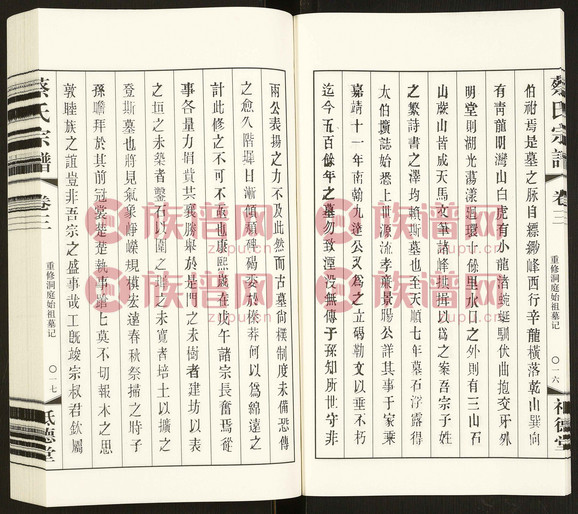 蔡氏宗譜 卷三
重修洞庭始祖墓记
〇一六
祇德堂
伯祔焉是墓之脉自縹緲峰西行辛龍橫落乾山巽向
有青龍明灣山白虎有小龍渚蜿蜒馴伏曲抱交牙外
明堂則湖光蕩漾迴環十餘里水口之外則有三山石
山蕨山皆威天馬文筆諸峰拱揖以爲之案吾宗子姓
之繁詩書之澤均賴斯墓也至天順七年墓石浮露得
太伯壙誌始悉上世源流孝廉景賜公詳其事于家乘
嘉靖十一年南翰九逵公又爲之立碣勒文以垂不朽
迄今五百餘年之墓勿致湮没無傳于孫知所世守非
兩公表揚之力不及此然而古墓尚樸制度未備恐傳
之愈久階墀日漸傾頹碑碣委於榛莽何以爲綿遠之
計此修之不可不亟也康熙歲在戊午諸宗長奮焉從
事各量力捐貲共襄勝舉於是門之未樹者建坊以表
之垣之未築者鑿石以圍之階之未寬者培土以擴之
登斯墓也將見氣象靜嶸規模宏遠春秋祭掃之時子
孫瞻拜於其前冠裳楚楚執事蹌七莫不切報木之思
敦睦族之誼豈非吾宗之盛事哉工既竣宗叔君欽屬
蔡氏宗譜 卷三
重修洞庭始祖墓记
〇一七
祇德堂
族谱网
zupu.cn
族谱网
zupu.cn
族谱网
zupu.cn
族谱网
zupu.cn